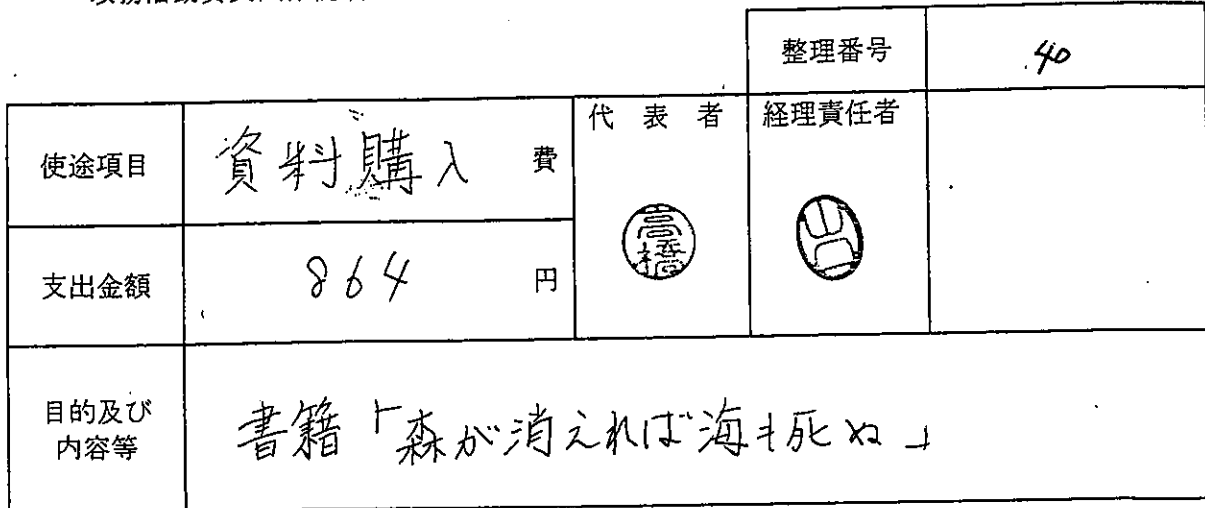 整理番号 40
使途項目 資料購入 費 代表者 経理責任者
高橋
支出金額 864 円
目的及び
内容等
書籍「森が消えれば海も死ぬ」